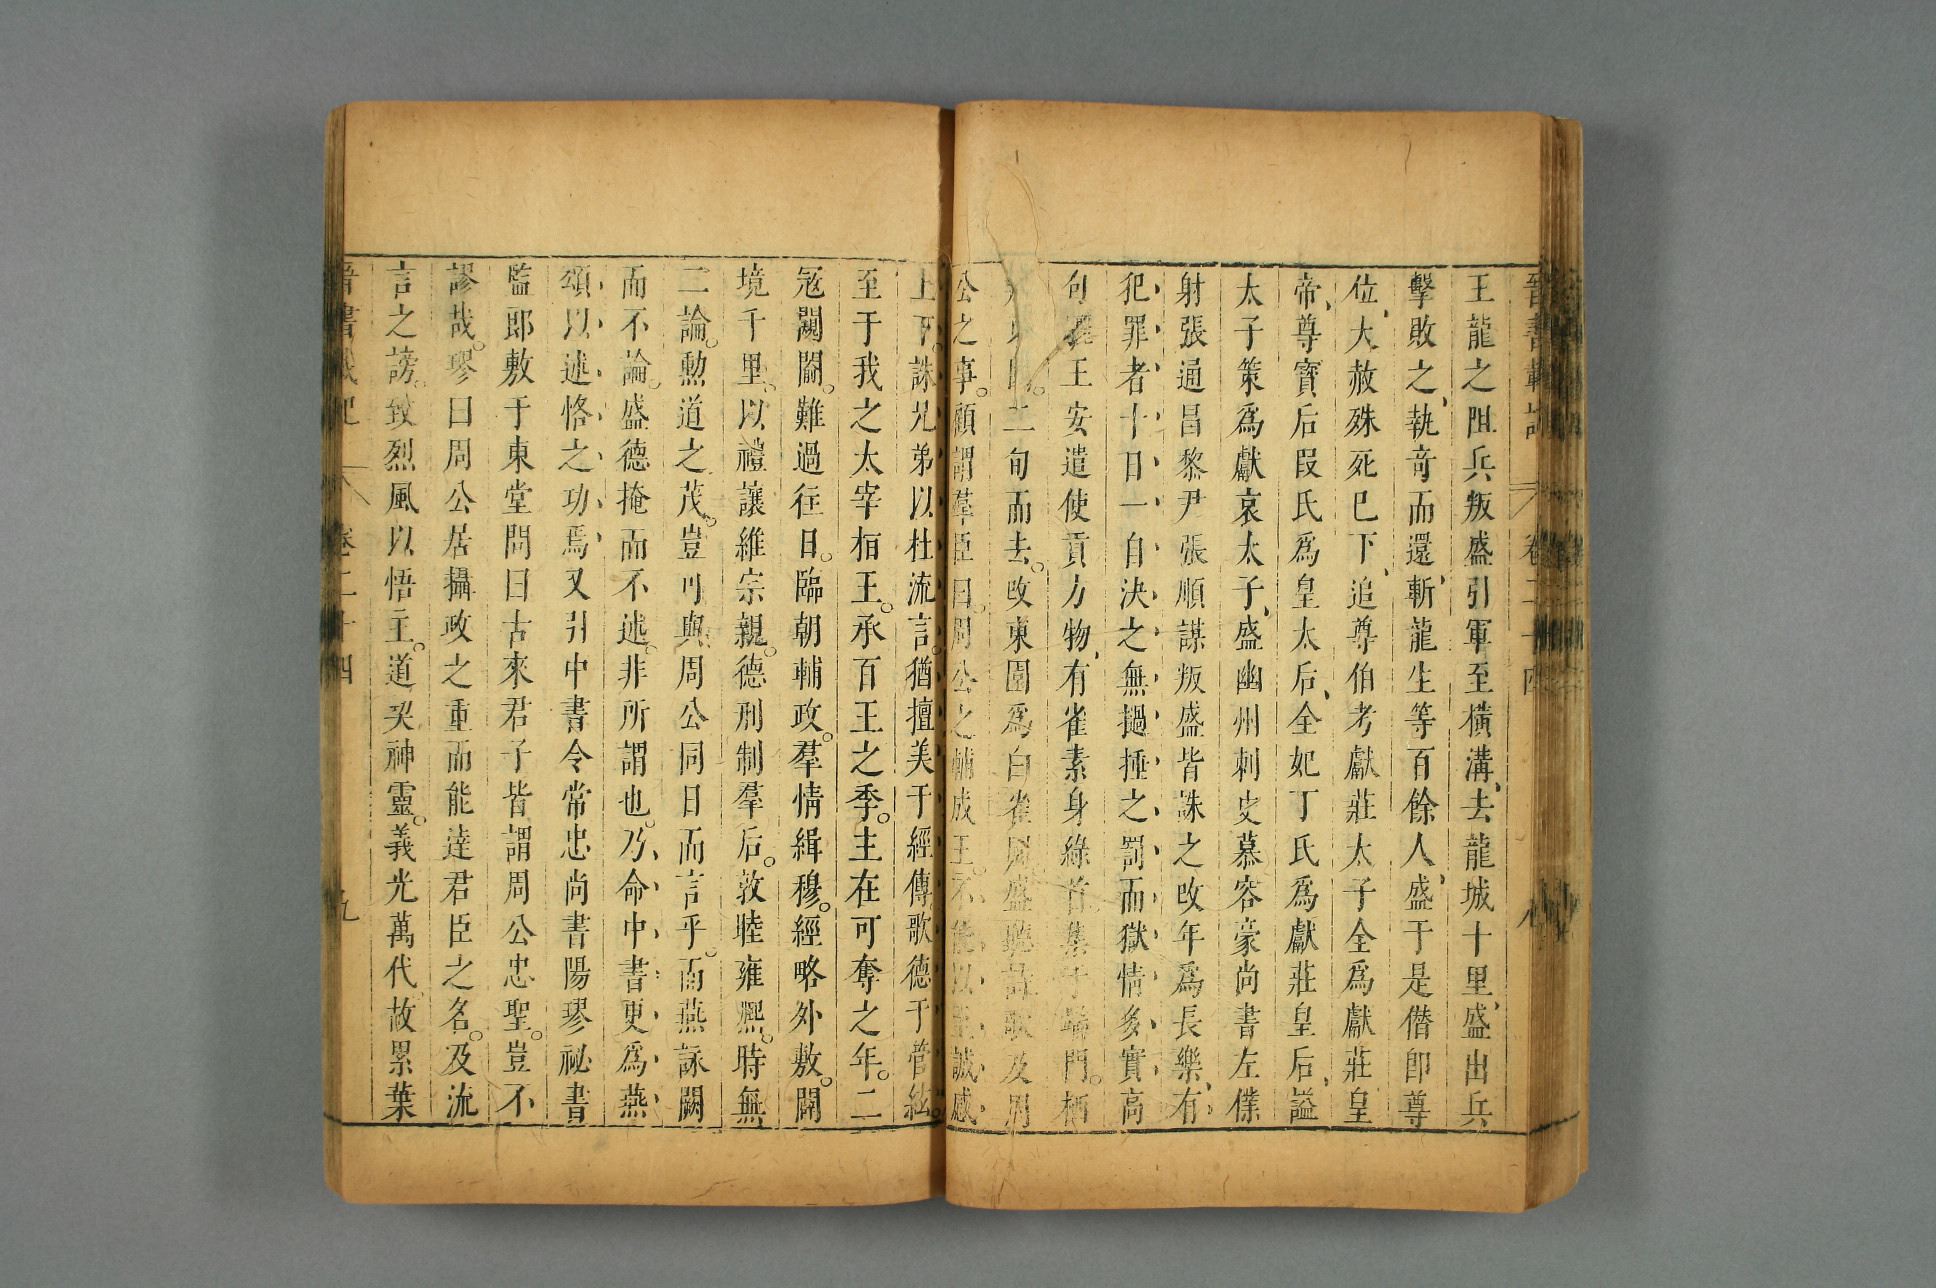 晉書載記 卷二十四 八
王龍之阻兵叛盛引軍至橫溝去龍城十里盛出兵
擊敗之執奇而還斬龍生等百餘人盛于是僭卽尊
位大赦殊死已下追尊伯考獻莊太子全爲獻莊皇
帝尊寶后段氏爲皇太后全妃丁氏爲獻莊皇后謚
太子策爲獻哀太子盛幽州刺史慕容豪尚書左僕
射張通昌黎尹張順謀叛盛皆誅之改年爲長樂有
犯罪者十日一自決之無撾捶之罰而獄情多實高
句驪王安遣使貢方物有雀素身綠首集于端門栖
二旬而去改東園爲白雀園盛聽詩歌及周
公之事顧謂羣臣曰周公之輔成王不能以至誠感
上下誅兄弟以杜流言猶擅美于經傳歌德于管絃
至于我之太宰桓王承百王之季主在可奪之年二
冦闚䦧難過往日臨朝輔政羣情緝穆經略外敷闢
境千里以禮讓維宗親德刑制羣后敦睦雍熙時無
二論勲道之茂豈可與周公同日而言乎而燕詠闕
而不論盛德掩而不述非所謂也乃命中書更爲燕
頌以述恪之功焉又引中書令常忠尚書陽璆祕書
監郎敷于東堂問曰古來君子皆謂周公忠聖豈不
謬哉璆曰周公居攝政之重而能達君臣之名及流
言之謗致烈風以悟主道契神靈義光萬代故累葉
晉書載記 卷二十四 九